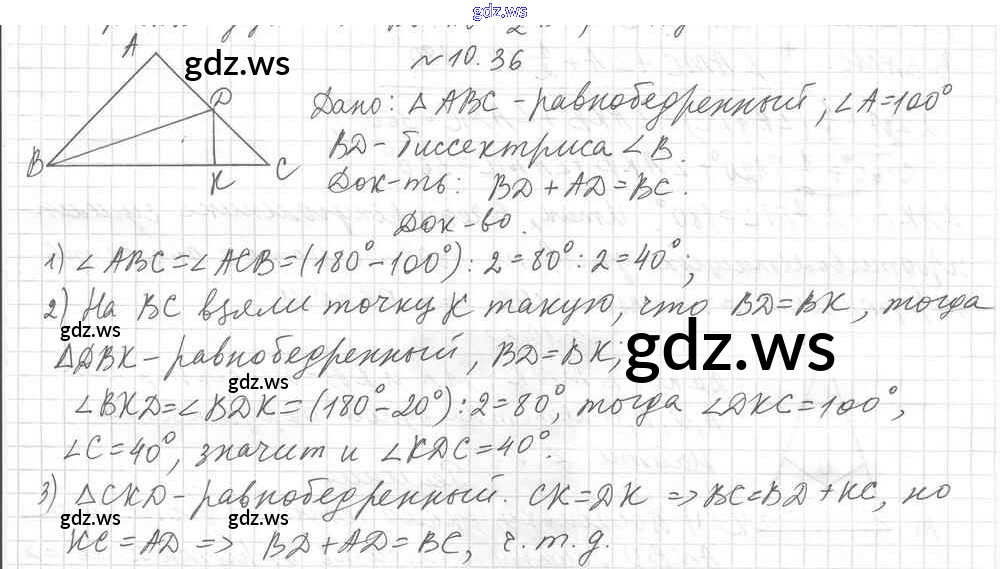 gdz.ws
№10.36
A
gdz.ws
D
B
K
C
Дано: △ ABC - равнобедренный; ∠A=100°
BD - биссектриса ∠B.
Док-ть: BD + AD = BC.
Док-во.
1) ∠ABC=∠ACB=(180°-100°):2=80°:2=40°;
2) На BC взяли точку K такую, что BD=BK, тогда
gdz.ws
△DBK - равнобедренный, BD=BK;
gdz.ws
gdz.ws
∠BKD=∠BDK=(180°-20°):2=80°, тогда ∠DKC=100°,
∠C=40°, значит и ∠KDC=40°.
3) △CKD - равнобедренный. CK=DK => BC=BD+KC, но
gdz.ws
gdz.ws
KC=AD => BD+AD=BC, ч.т.д.